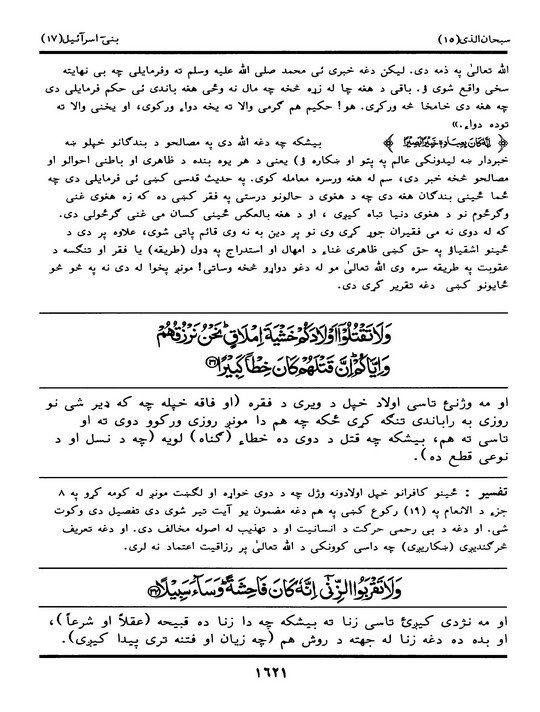 سبحان الذی(۱۵) بنی اسرآئیل(۱۷)
الله تعالیٰ په ذمه دی. لیکن دغه خبری ئی محمد صلی الله علیه وسلم ته وفرمایلی چه بی نهایته
سخی واقع شوی ؤ. باقی د هغه چا له زړه څخه چه مال نه وڅی هغه باندی ئی حکم فرمایلی دی
چه هغه دی خامخا څه ورکړی. هو! حکیم هم گرمی والا ته یخه دواء ورکوی، او یخنی والا ته
توده دواء.»
﴿ اِنَّهٗ كَانَ بِعِبَادِهٖ خَبِيْرًۢا بَصِيْرًا ﴾ بیشکه چه دغه الله دی په مصالحو د بندگانو خپلو ښه
خبردار ښه لیدونکی عالم په پتو او ښکاره ؤ) یعنی د هر یوه بنده د ظاهری او باطنی احوالو او
مصالحو څخه خبر دی، سم له هغه ورسره معامله کوی. په حدیث قدسی کښی ئی فرمایلی دی چه
ځما ځینی بندگان هغه دی چه د هغوی د حالونو درستی په فقر کښی ده که زه هغوی غنی
وگرځوم نو د هغوی دنیا تباه کیږی ، او د هغه بالعکس ځینی کسان می غنی گرځولی دی.
که له دوی نه می فقیران جوړ کړی وی نو پر دین به نه وی قائم پاتی شوی، علاوه پر دی د
ځینو اشقیاؤ په حق کښی ظاهری غناء د امهال او استدراج په ډول (طریقه) یا فقر او تنگسه د
عقوبت په طریقه سره وی الله تعالیٰ مو له دغو دواړو څخه وساتی! مونږ پخوا له دی نه په څو څو
ځایونو کښی دغه تقریر کړی دی.
وَلَا تَقْتُلُوْٓا اَوْلَادَكُمْ خَشْيَةَ اِمْلَاقٍ ؕ نَحْنُ نَرْزُقُهُمْ
وَاِيَّاكُمْ ؕ اِنَّ قَتْلَهُمْ كَانَ خِطْاً كَبِيْرًا ۝۳۱
او مه وژنئ تاسی اولاد خپل د ویری د فقره (او فاقه خپله چه که ډیر شی نو
روزی به راباندی تنگه کړی ځکه چه هم دا مونږ روزی ورکوو دوی ته او
تاسی ته هم، بیشکه چه قتل د دوی ده خطاء (گناه) لویه (چه د نسل او د
نوعی قطع ده).
تفسیر : ځینو کافرانو خپل اولادونه وژل چه د دوی خواړه او لگښت مونږ له کومه کړو په ۸
جزء د الانعام په (۱۹) رکوع کښی په هم دغه مضمون یو آیت تیر شوی دی تفصیل دی وکوت
شی. او دغه د بی رحمی حرکت د انسانیت او د تهذیب له اصوله مخالف دی. او دغه تعریف
څرگندیږی (ښکاریږی) چه داسی کوونکی د الله تعالیٰ پر رزاقیت اعتماد نه لری.
وَلَا تَقْرَبُوا الزِّنٰٓى اِنَّهٗ كَانَ فَاحِشَةً ؕ وَسَآءَ سَبِيْلًا ۝۳۲
او مه نژدی کیږئ تاسی زنا ته بیشکه چه دا زنا ده قبیحه (عقلاً او شرعاً)،
او بده ده دغه زنا له جهته د روش هم (چه زیان او فتنه تری پیدا کیږی).
۱٦۲۱